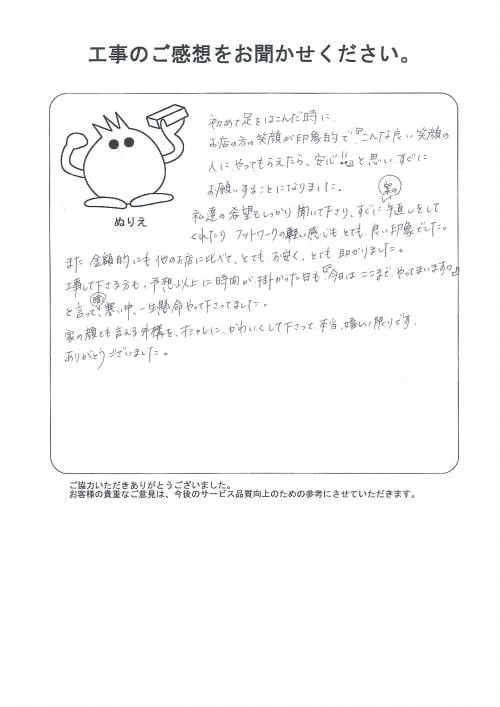 工事のご感想をお聞かせください。
初めて足をはこんだ時に
お店の方の笑顔が印象的で『こんな良い笑顔の
人にやってもらえたら、安心!!』と思い すぐに
お願いすることになりました。
ぬりえ
私達の希望もしっかり聞いて下さり、すぐに手直しをして
くれたり フットワークの軽い感じも とても 良い印象でした。
また 金額的にも 他のお店に比べて、とても お安く、とても 助かりました。
工事して下さる方も、予想以上に時間が掛かった日も『今日は ここまで やってまいます。』
と言って、寒い中、一生懸命やって下さってました。
家の顔とも言える外構を、オシャレに、かわいくして下さって 本当、嬉しい限りです。
ありがとうございました。
ご協力いただきありがとうございました。
お客様の貴重なご意見は、今後のサービス品質向上のための参考にさせていただきます。